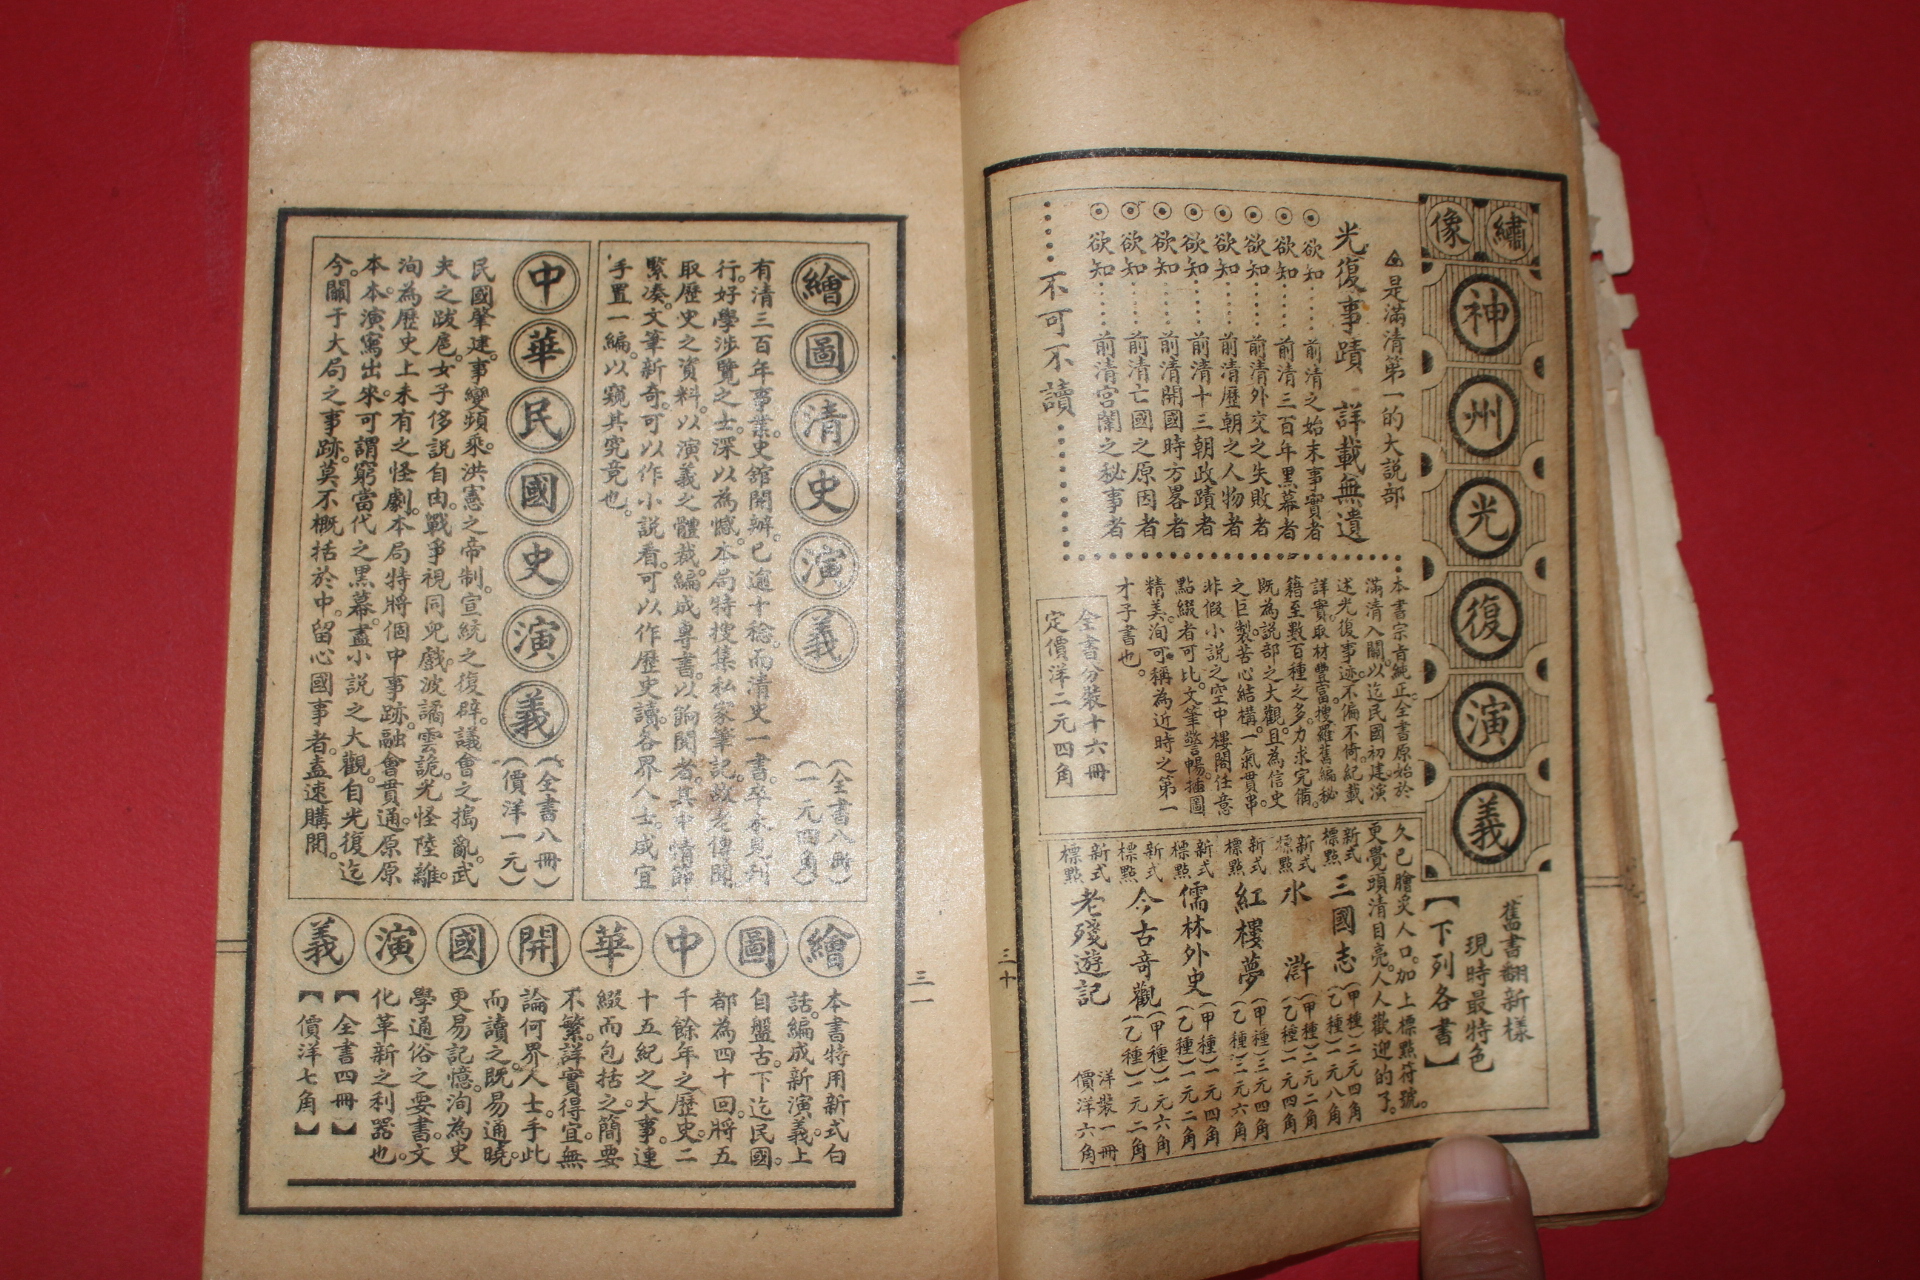 繡像
神州光復演義
是滿清第一的大説部
光復事蹟　詳載無遺
◉欲知……前清之始末事實者
◉欲知……前清三百年黑幕者
◉欲知……前清外交之失敗者
◉欲知……前清歷朝之人物者
◉欲知……前清十三朝政蹟者
◉欲知……前清開國時方畧者
◉欲知……前清亡國之原因者
◉欲知……前清宮闈之秘事者
……不可不讀……
本書宗旨純正。全書原始於
滿清入關。以迄民國初建。演
述光復事迹。不偏不倚。紀載
詳實。取材豐富。搜羅舊編秘
籍至數百種之多。力求完備。
既為説部之大觀。且為信史
之巨製。苦心結構。一氣貫串
非假小説之空中樓閣任意
點綴者可比。文筆警暢。插圖
精美。洵可稱為近時之第一
才子書也。
全書分裝十六冊
定價洋二元四角
舊書翻新樣
現時最特色
【下列各書】
久已膾炙人口。加上標點符號。
更覺頭清目亮。人人歡迎的了。
新式標點　三國志　(甲種)二元四角　(乙種)一元八角
新式標點　水滸　(甲種)二元二角　(乙種)一元四角
新式標點　紅樓夢　(甲種)三元四角　(乙種)二元六角
新式標點　儒林外史　(甲種)一元四角　(乙種)一元二角
新式標點　今古奇觀　(甲種)一元六角　(乙種)一元二角
新式標點　老殘遊記　洋裝一冊　價洋六角
三十
三一
繪圖清史演義
(全書八冊)
(一元四角)
有清三百年事業。史館開辦。已逾十稔。而清史一書。卒未見刊
行。好學涉覽之士。深以為憾。本局特搜集私家筆記。故老傳聞
取歷史之資料。以演義之體裁。編成專書。以餉閱者。其中情節
緊湊。文筆新奇。可以作小説看。可以作歷史讀。各界人士。咸宜
手置一編。以窺其究竟也。
中華民國史演義
(全書八冊)
(價洋一元)
民國肇建。事變頻乘。洪憲之帝制。宣統之復辟。議會之搗亂。武
夫之跋扈。女子侈説自由。戰爭視同兒戲。波譎雲詭。光怪陸離。
洵為歷史上未有之怪劇。本局特將個中事跡。融會貫通。原原
本本。演寫出來。可謂窮當代之黑幕。盡小説之大觀。自光復迄
今。關于大局之事跡。莫不概括於中。留心國事者。盍速購閱。
繪圖中華開國演義
本書特用新式白
話。編成新演義。上
自盤古。下迄民國。
都為四十回。將五
千餘年之歷史。二
十五紀之大事。連
綴而包括之。簡要
不繁。詳實得宜。無
論何界人士。手此
而讀之。既易通曉。
更易記憶。洵為史
學通俗之要書。文
化革新之利器也。
【全書四冊】
【價洋七角】